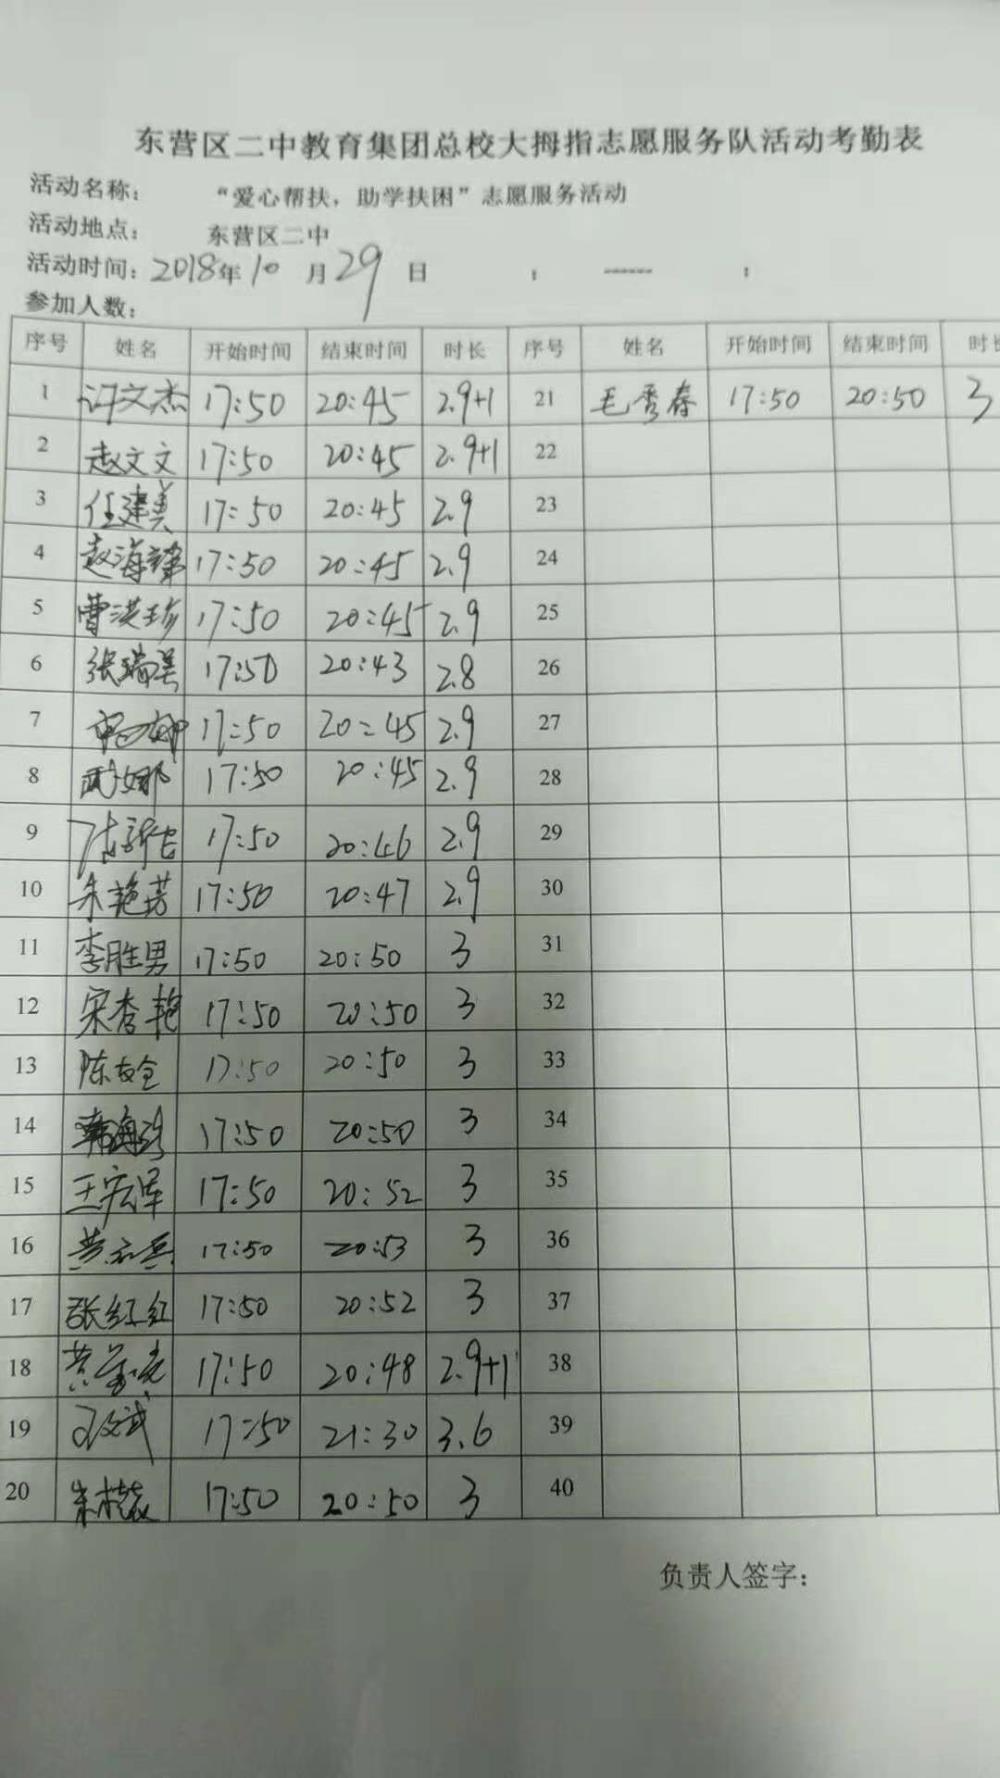 东营区二中教育集团总校大拇指志愿服务队活动考勤表
活动名称： “爱心帮扶，助学扶困”志愿服务活动
活动地点： 东营区二中
活动时间：2018年10月29日 : ------ :
参加人数：
序号 姓名 开始时间 结束时间 时长 序号 姓名 开始时间 结束时间 时长
1 许文杰 17:50 20:45 2.9+1 21 毛秀春 17:50 20:50 3
2 赵文文 17:50 20:45 2.9+1 22
3 任建美 17:50 20:45 2.9 23
4 赵海 17:50 20:45 2.9 24
5 曹洪珍 17:50 20:45 2.9 25
6 张瑞美 17:50 20:43 2.8 26
7 17:50 20:45 2.9 27
8 武娜 17:50 20:45 2.9 28
9 17:50 20:46 2.9 29
10 朱艳芳 17:50 20:47 2.9 30
11 李胜男 17:50 20:50 3 31
12 宋秀艳 17:50 20:50 3 32
13 陈友全 17:50 20:50 3 33
14 韩海 17:50 20:50 3 34
15 王宏军 17:50 20:52 3 35
16 黄 17:50 20:53 3 36
17 张红红 17:50 20:52 3 37
18 黄 17:50 20:48 2.9+1 38
19 17:50 21:30 3.6 39
20 朱 17:50 20:50 3 40
负责人签字：